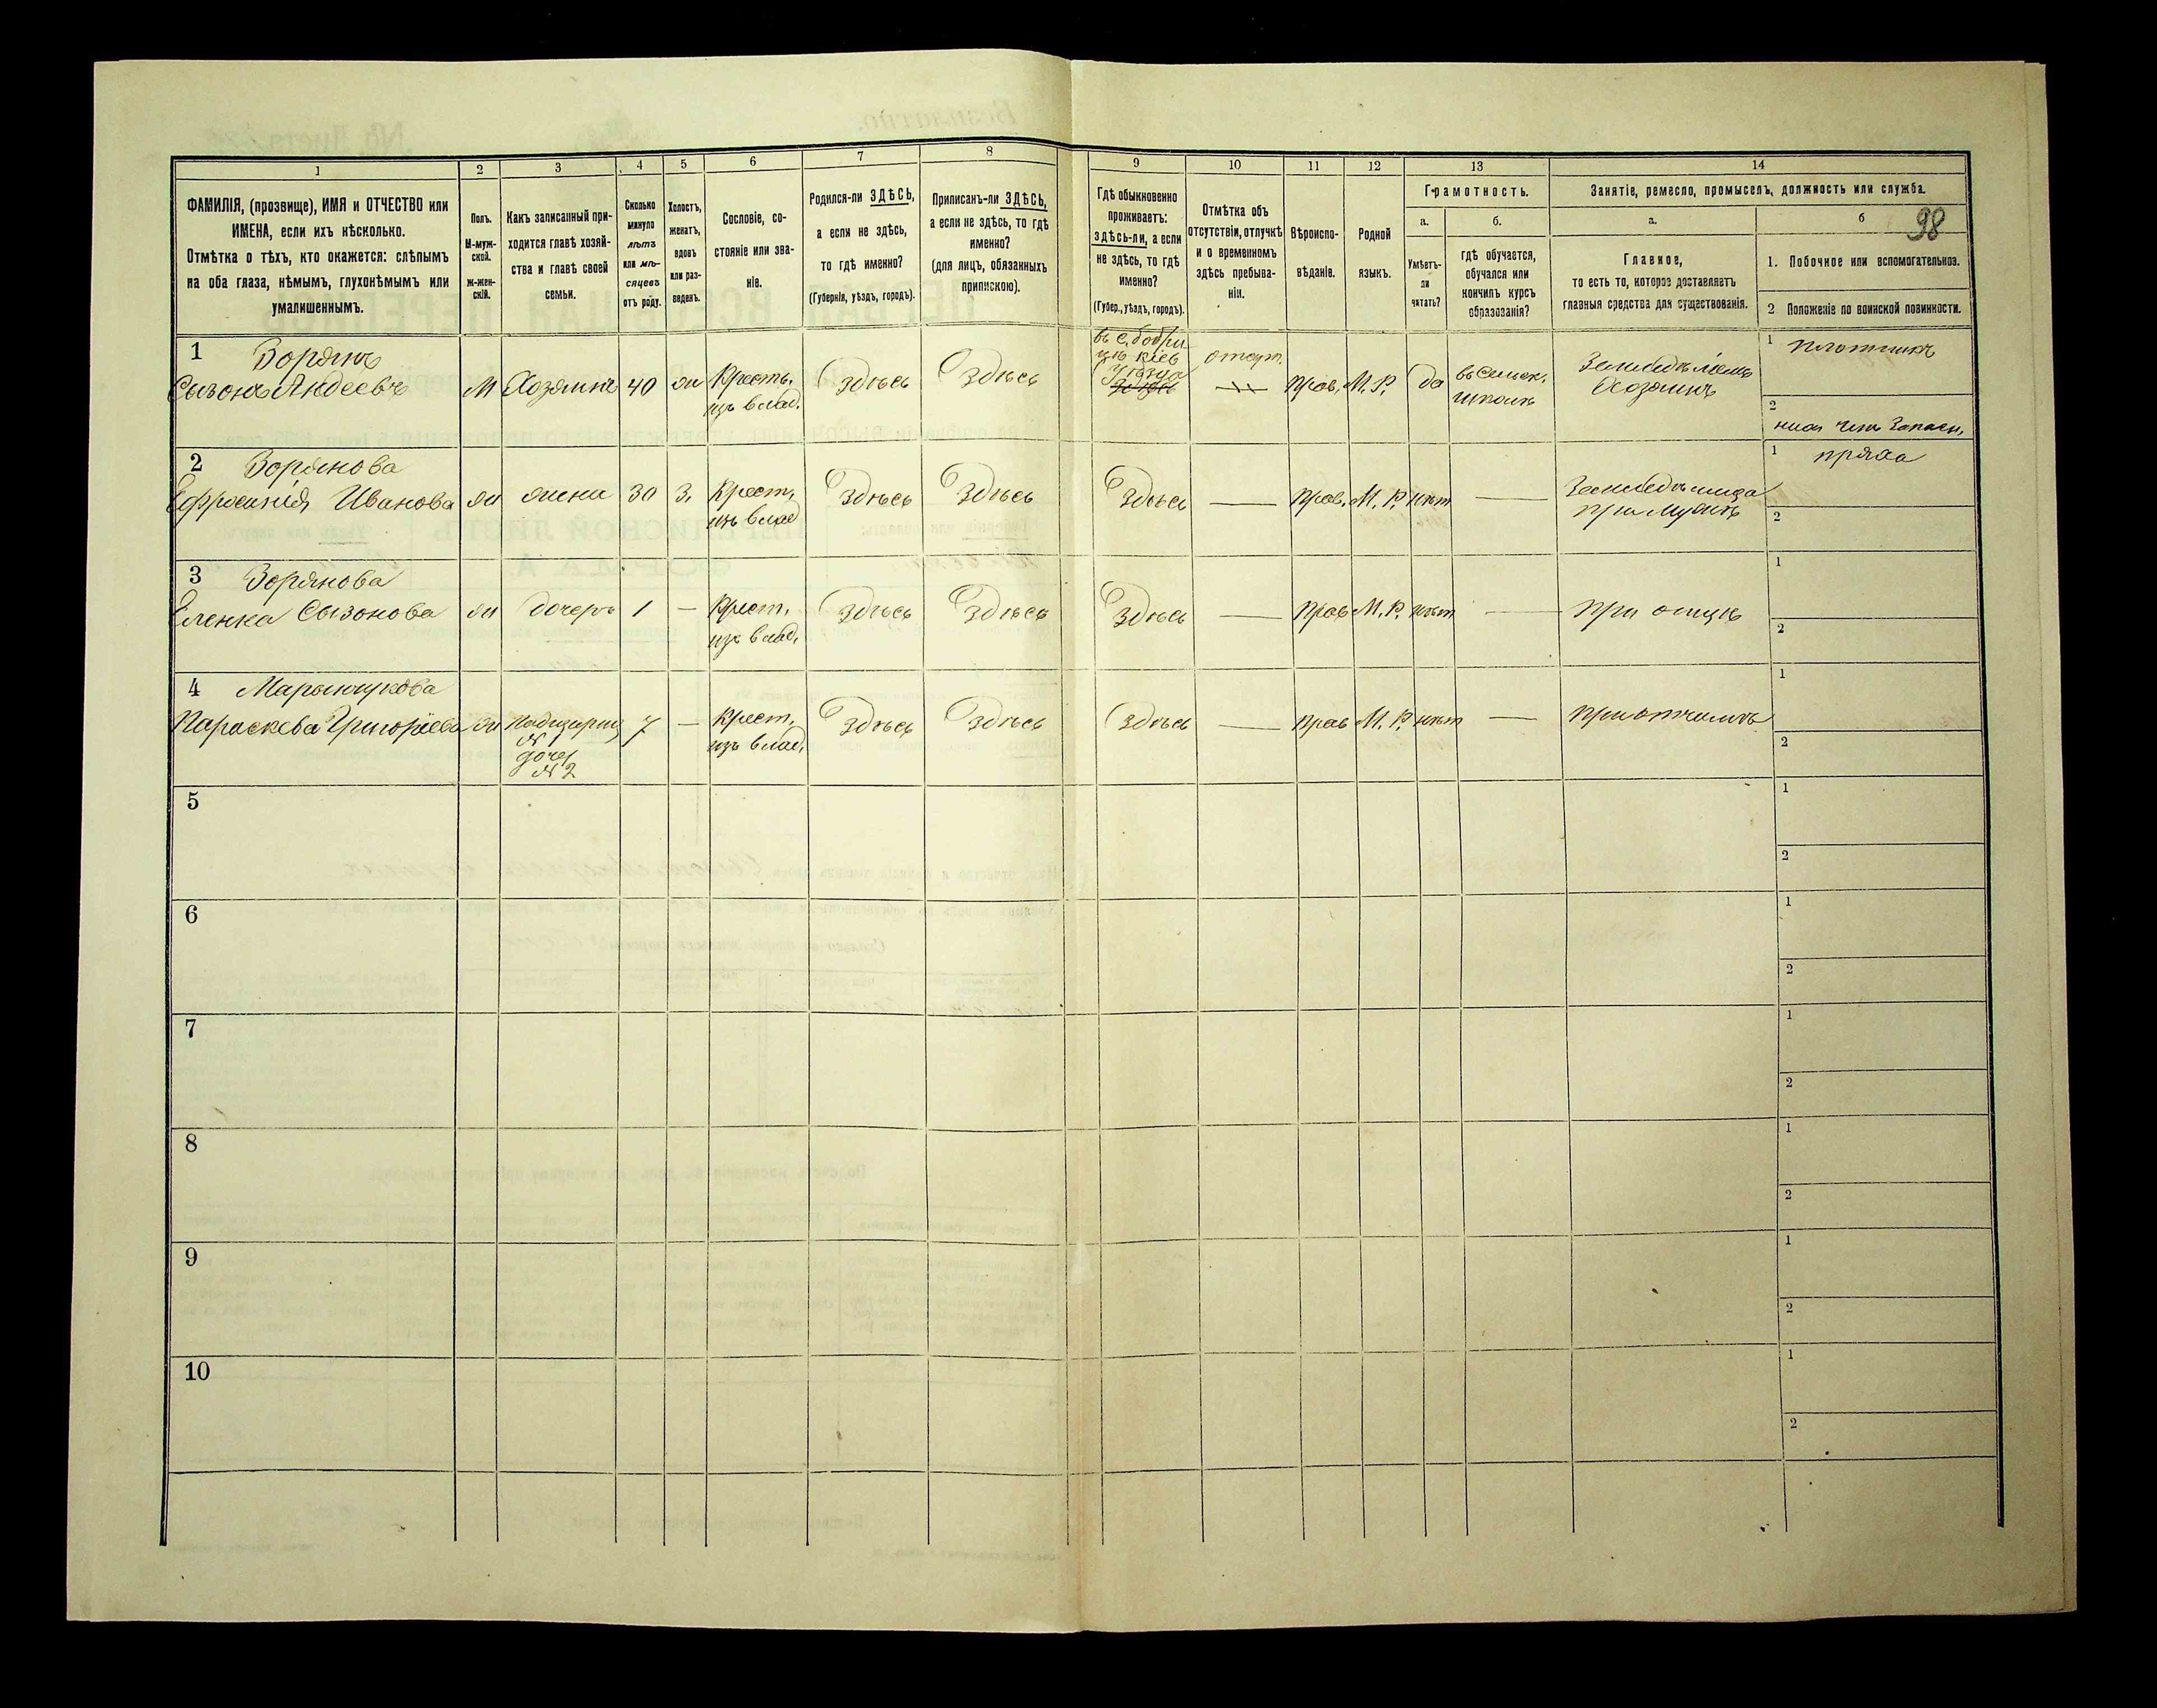 1
2
3
4
5
6
7
8
9
10
11
12
13
14
ФАМИЛІЯ, (прозвище), ИМЯ и ОТЧЕСТВО или
ИМЕНА, если ихъ нѣсколько.
Отмѣтка о тѣхъ, кто окажется: слѣпымъ
на оба глаза, нѣмымъ, глухонѣмымъ или
умалишеннымъ.
Полъ.
М-муж-
ской.
Ж-жен-
скій.
Какъ записанный при-
ходится главѣ хозяй-
ства и главѣ своей
семьи.
Сколько
минуло
лѣтъ
или мѣ-
сяцевъ
отъ роду.
Холостъ,
женатъ,
вдовъ
или раз-
веденъ.
Сословіе, со-
стояніе или зва-
ніе.
Родился-ли ЗДѢСЬ,
а если не здѣсь,
то гдѣ именно?
(Губернія, уѣздъ, городъ).
Приписанъ-ли ЗДѢСЬ,
а если не здѣсь, то гдѣ
именно?
(для лицъ, обязанныхъ
припискою).
Гдѣ обыкновенно
проживаетъ:
ЗДѢСЬ-ЛИ, а если
не здѣсь, то гдѣ
именно?
(Губер., уѣздъ, городъ).
Отмѣтка объ
отсутствіи, отлучкѣ
и о временномъ
здѣсь пребыва-
ніи.
Вѣроиспо-
вѣданіе.
Родной
языкъ.
Грамотность.
а.
Умѣетъ-
ли
читать?
б.
гдѣ обучается,
обучался или
кончилъ курсъ
образованія?
Занятіе, ремесло, промыселъ, должность или служба.
а.
Главное,
то есть то, которое доставляетъ
главныя средства для существованія.
б
98
1. Побочное или вспомогательное.
2 Положеніе по воинской повинности.
1 Зорянъ
Сызонъ Андеевъ
М
Хозяинъ
40
жн
Кресть.
изъ влад.
Здѣсь
Здѣсь
въ с. Бобри
цѣ Кіев
уѣзда
отсут.
Прав.
М. Р.
да
въ сельск.
школѣ
Хозяинъ
1 плотникъ
2
2 Зорянова
Ефросинія Иванова
жн
жена
30
З.
Крест.
изъ влад
Здѣсь
Здѣсь
Здѣсь
Прав.
М. Р.
нѣт
при мужѣ
1 пряха
2
3 Зорянова
Еленка Сызонова
жн
дочерь
1
Крест.
изъ влад.
Здѣсь
Здѣсь
Здѣсь
Прав
М. Р.
нѣт
при отцѣ
1
2
4
Параскева Григоріева
жн
Падчериц
№ 1
дочер
№ 2
7
Крест.
изъ влад.
Здѣсь
Здѣсь
Здѣсь
Прав
М. Р.
нѣт
при отчимѣ
1
2
5
1
2
6
1
2
7
1
2
8
1
2
9
1
2
10
1
2